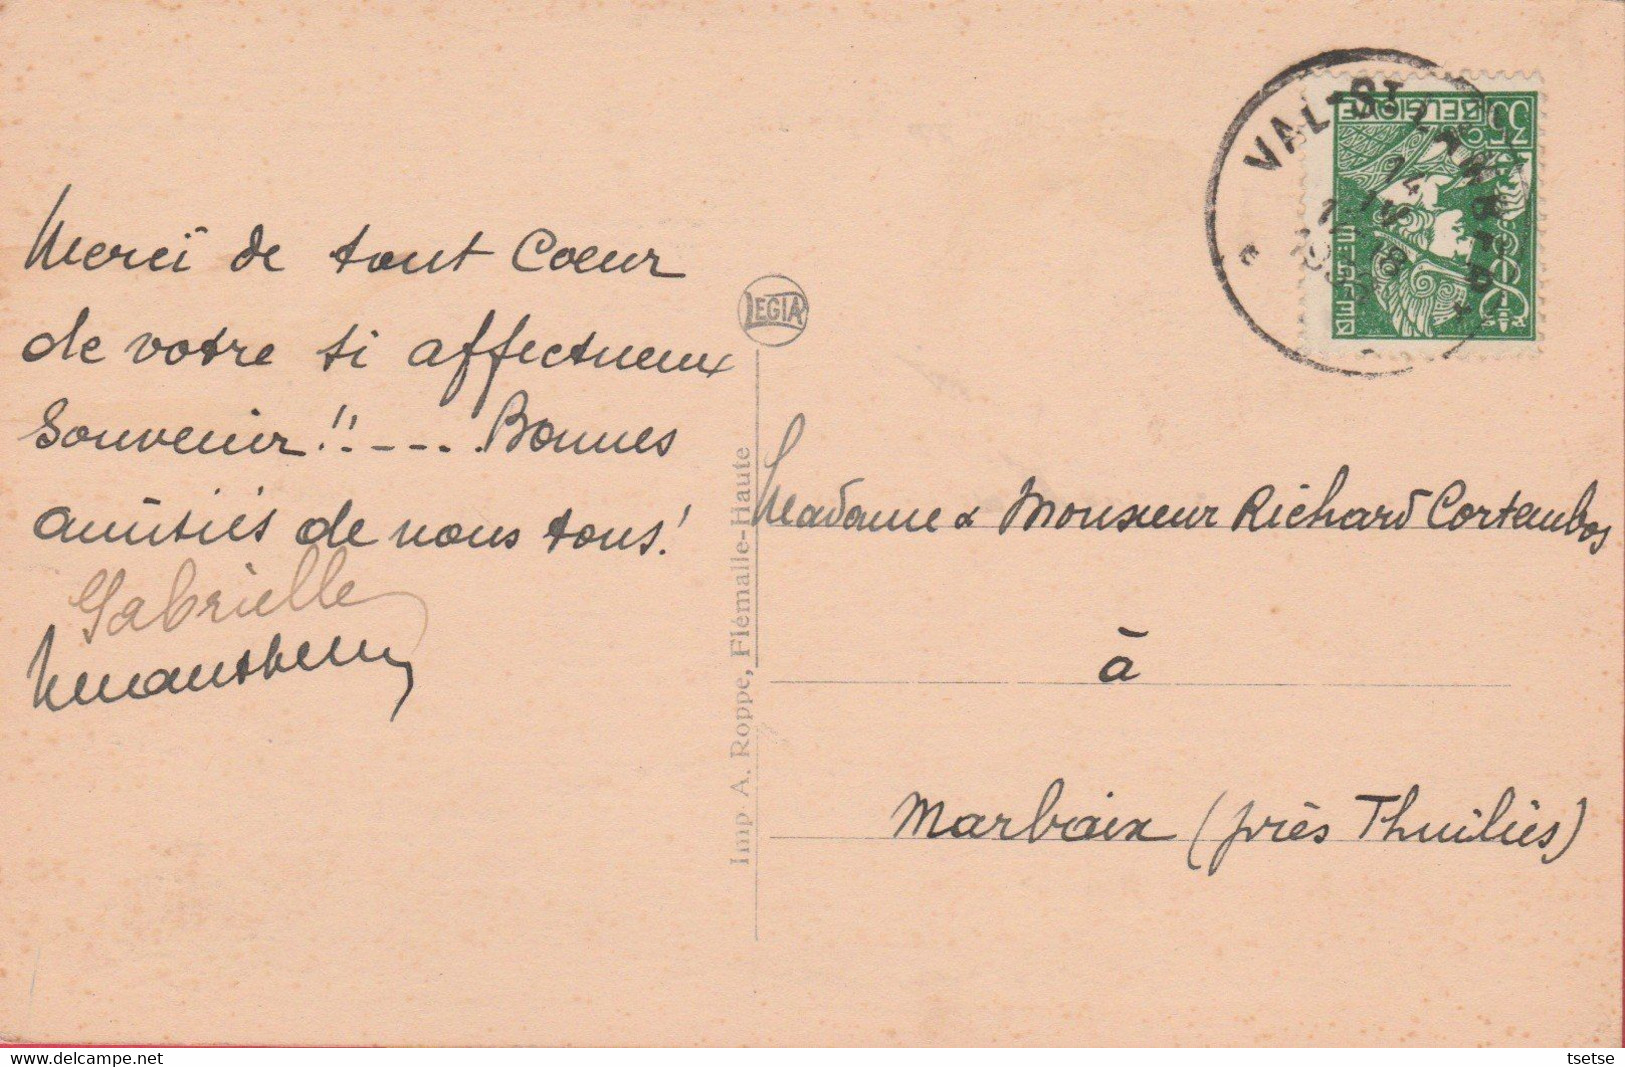 Merci de tout Coeur
de votre si affectueux
Souvenir !! - - - . Bonnes
amitiés de nous tous!
Gabrielle
LEGIA
Imp A. Roppe, Flémalle-Haute
VAL-ST LAMBERT
14
18
BELGIQUE
35
Madame & Monsieur Richard Cortembos
à
Marbaix (près Thuiliès)
delcampe.net
tsetse